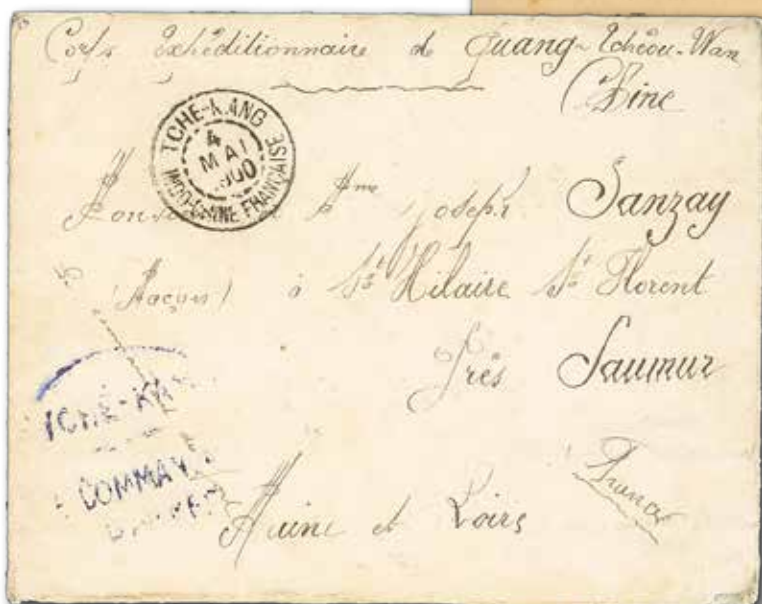 Corps Expéditionnaire de Quang-Tchéou-Wan
Chine
TCHE-KANG
4
MAI
1900
INDO-CHINE FRANÇAISE
et Mme Joseph Sanzay
(Maçon) à St Hilaire St Florent
Près Saumur
TCHÉ-KA
COMMAN
Maine et Loire
France